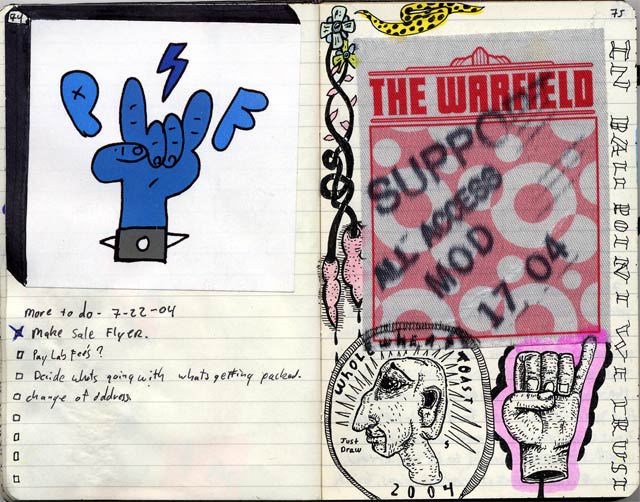 74
P F
more to do - 7-22-04
Make Sale Flyer.
Pay Lab Fees?
Decide whats going with whats getting packed.
change of address
75
THE WARFIELD
SUPPORT
ALL ACCESS
MOD
17 04
IN BALL POINT WE TRUST
WHOLE WHEAT TOAST
Just
Draw
2004